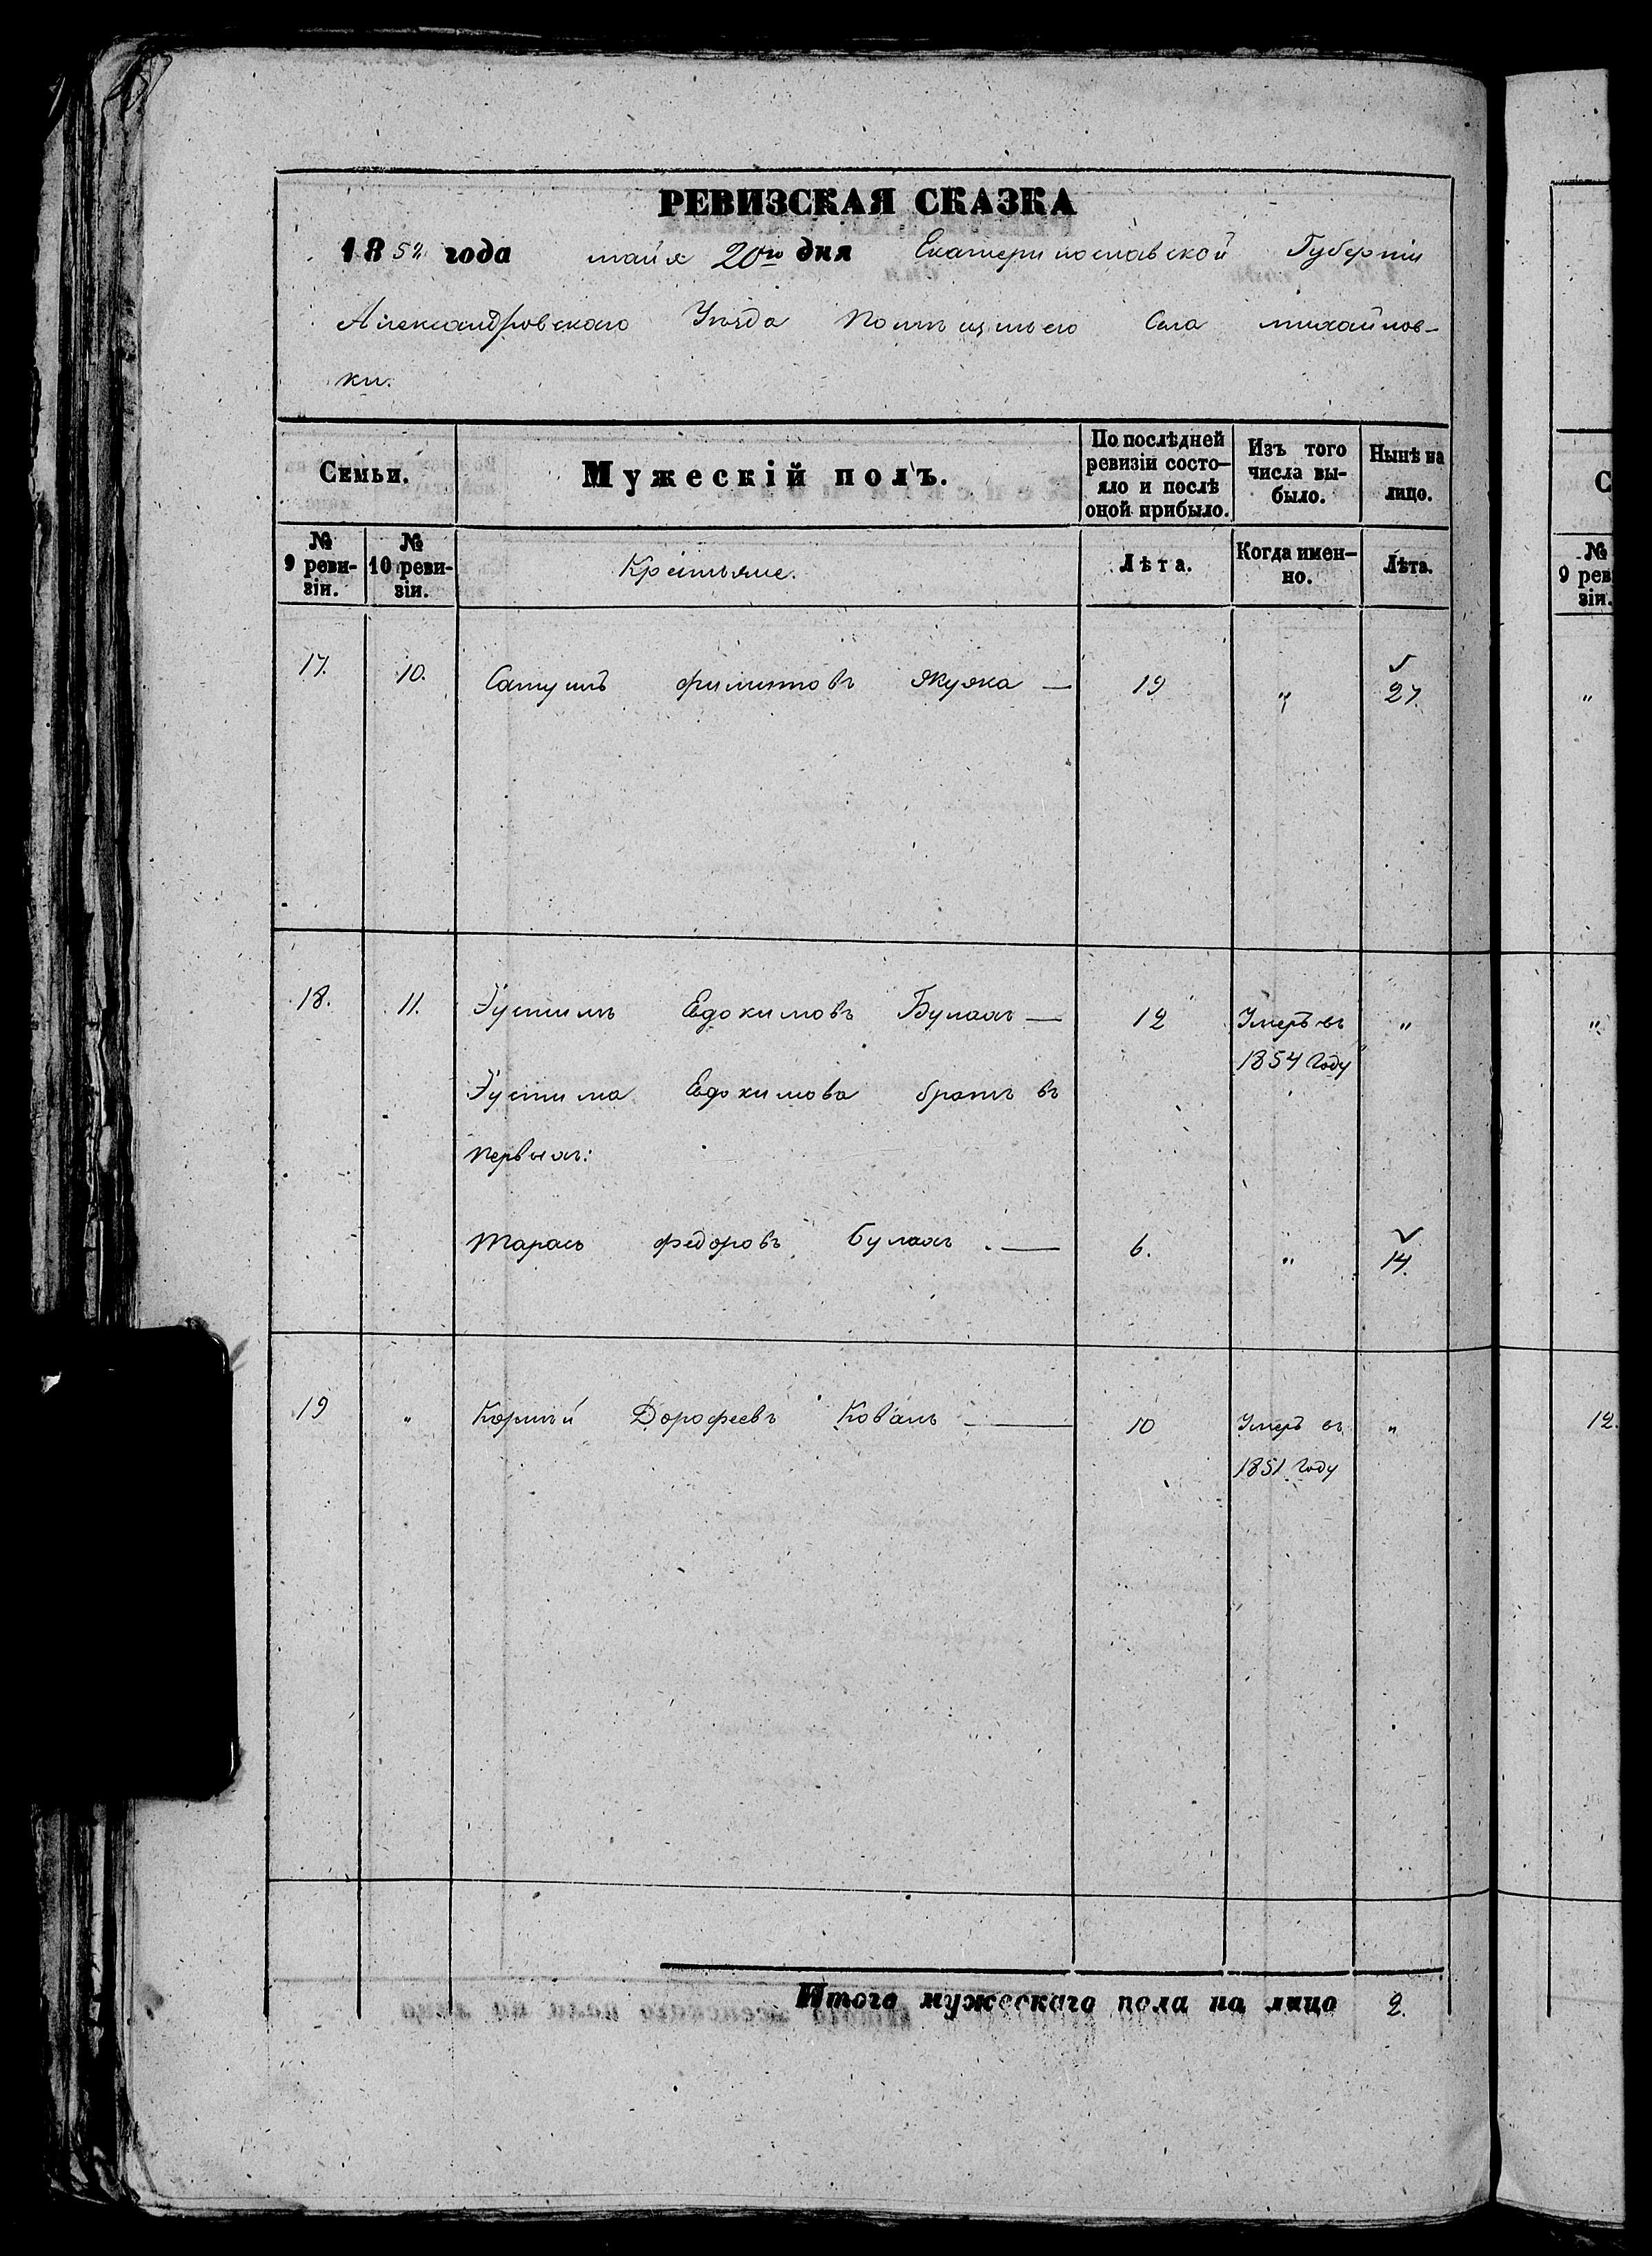 РЕВИЗСКАЯ СКАЗКА
1858 года мая 20го дня Екатеринославской Губерніи
Александровскаго Уѣзда Села михайлов-
ки.
Семьи. Мужескій полъ. По послѣдней ревизіи состо-яло и послѣ оной прибыло. Изъ того числа вы-было. Нынѣ на лицо.
№ 9 реви-зіи. № 10 реви-зіи. Крестьяне. Лѣта. Когда имен-но. Лѣта.
17. 10. Самуилъ филиповъ — 19 „ 27.
18. 11. Устимъ Евдокимовъ Булахъ — 12 Умеръ въ „
1854 году
Устима Евдокимова братъ въ
первыхъ:
Тарасъ федоровъ булахъ — 6. „ 14.
19 „ Корнѣй Дорофеевъ Коваль — 10 Умеръ въ „
1851 году
Итого мужескаго пола на лицо 2.
С
№
9 рев
зіи.
„
„
12.